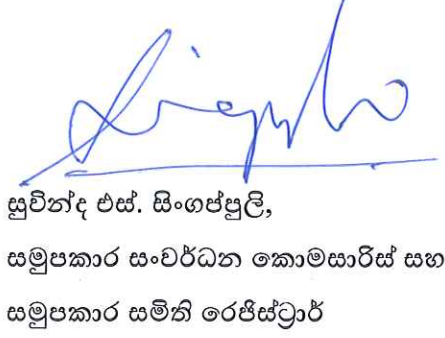 සුවින්ද එස්. සිංගප්පුලි,
සමුපකාර සංවර්ධන කොමසාරිස් සහ
සමුපකාර සමිති රෙජිස්ට්‍රාර්